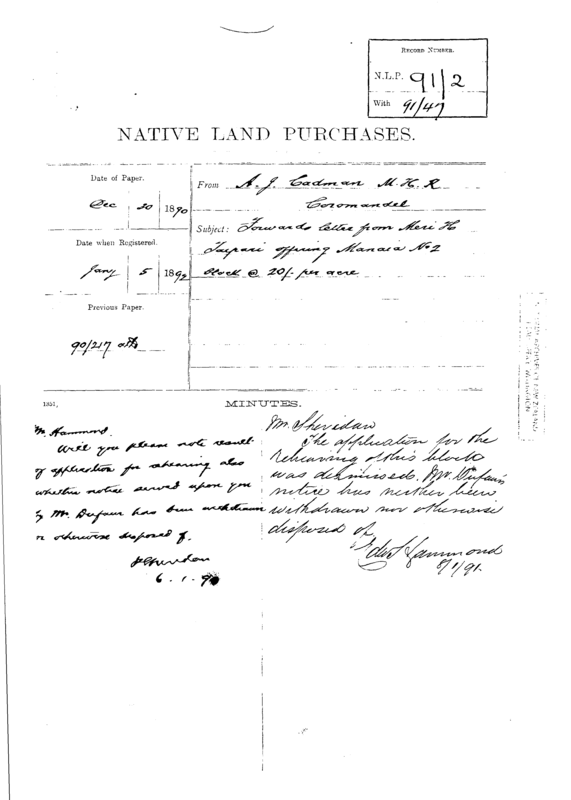 RECORD NUMBER.
N.L.P. 91/2
With 91/47
NATIVE LAND PURCHASES.
Date of Paper.
Dec 20 1890
Date when Registered.
Jany 5 1892
Previous Paper.
90/217
From A. J. Cadman M.H.R
Coromandel
Subject: Forwards letter from Meri H
Taipari offering Manaia No 2
block @ 20/- per acre
1351,
MINUTES.
Mr. Hammond.
Will you please note result
of application for rehearing also
whether notice served upon you
by Mr. Dufaur has been withdrawn
or otherwise disposed of.
PSheridan
6.1.90
Mr. Sheridan
The application for the
Rehearing of this block
was dismissed. Mr. Dufaur's
notice has neither been
withdrawn nor otherwise
disposed of
Hammond
8/1/91.